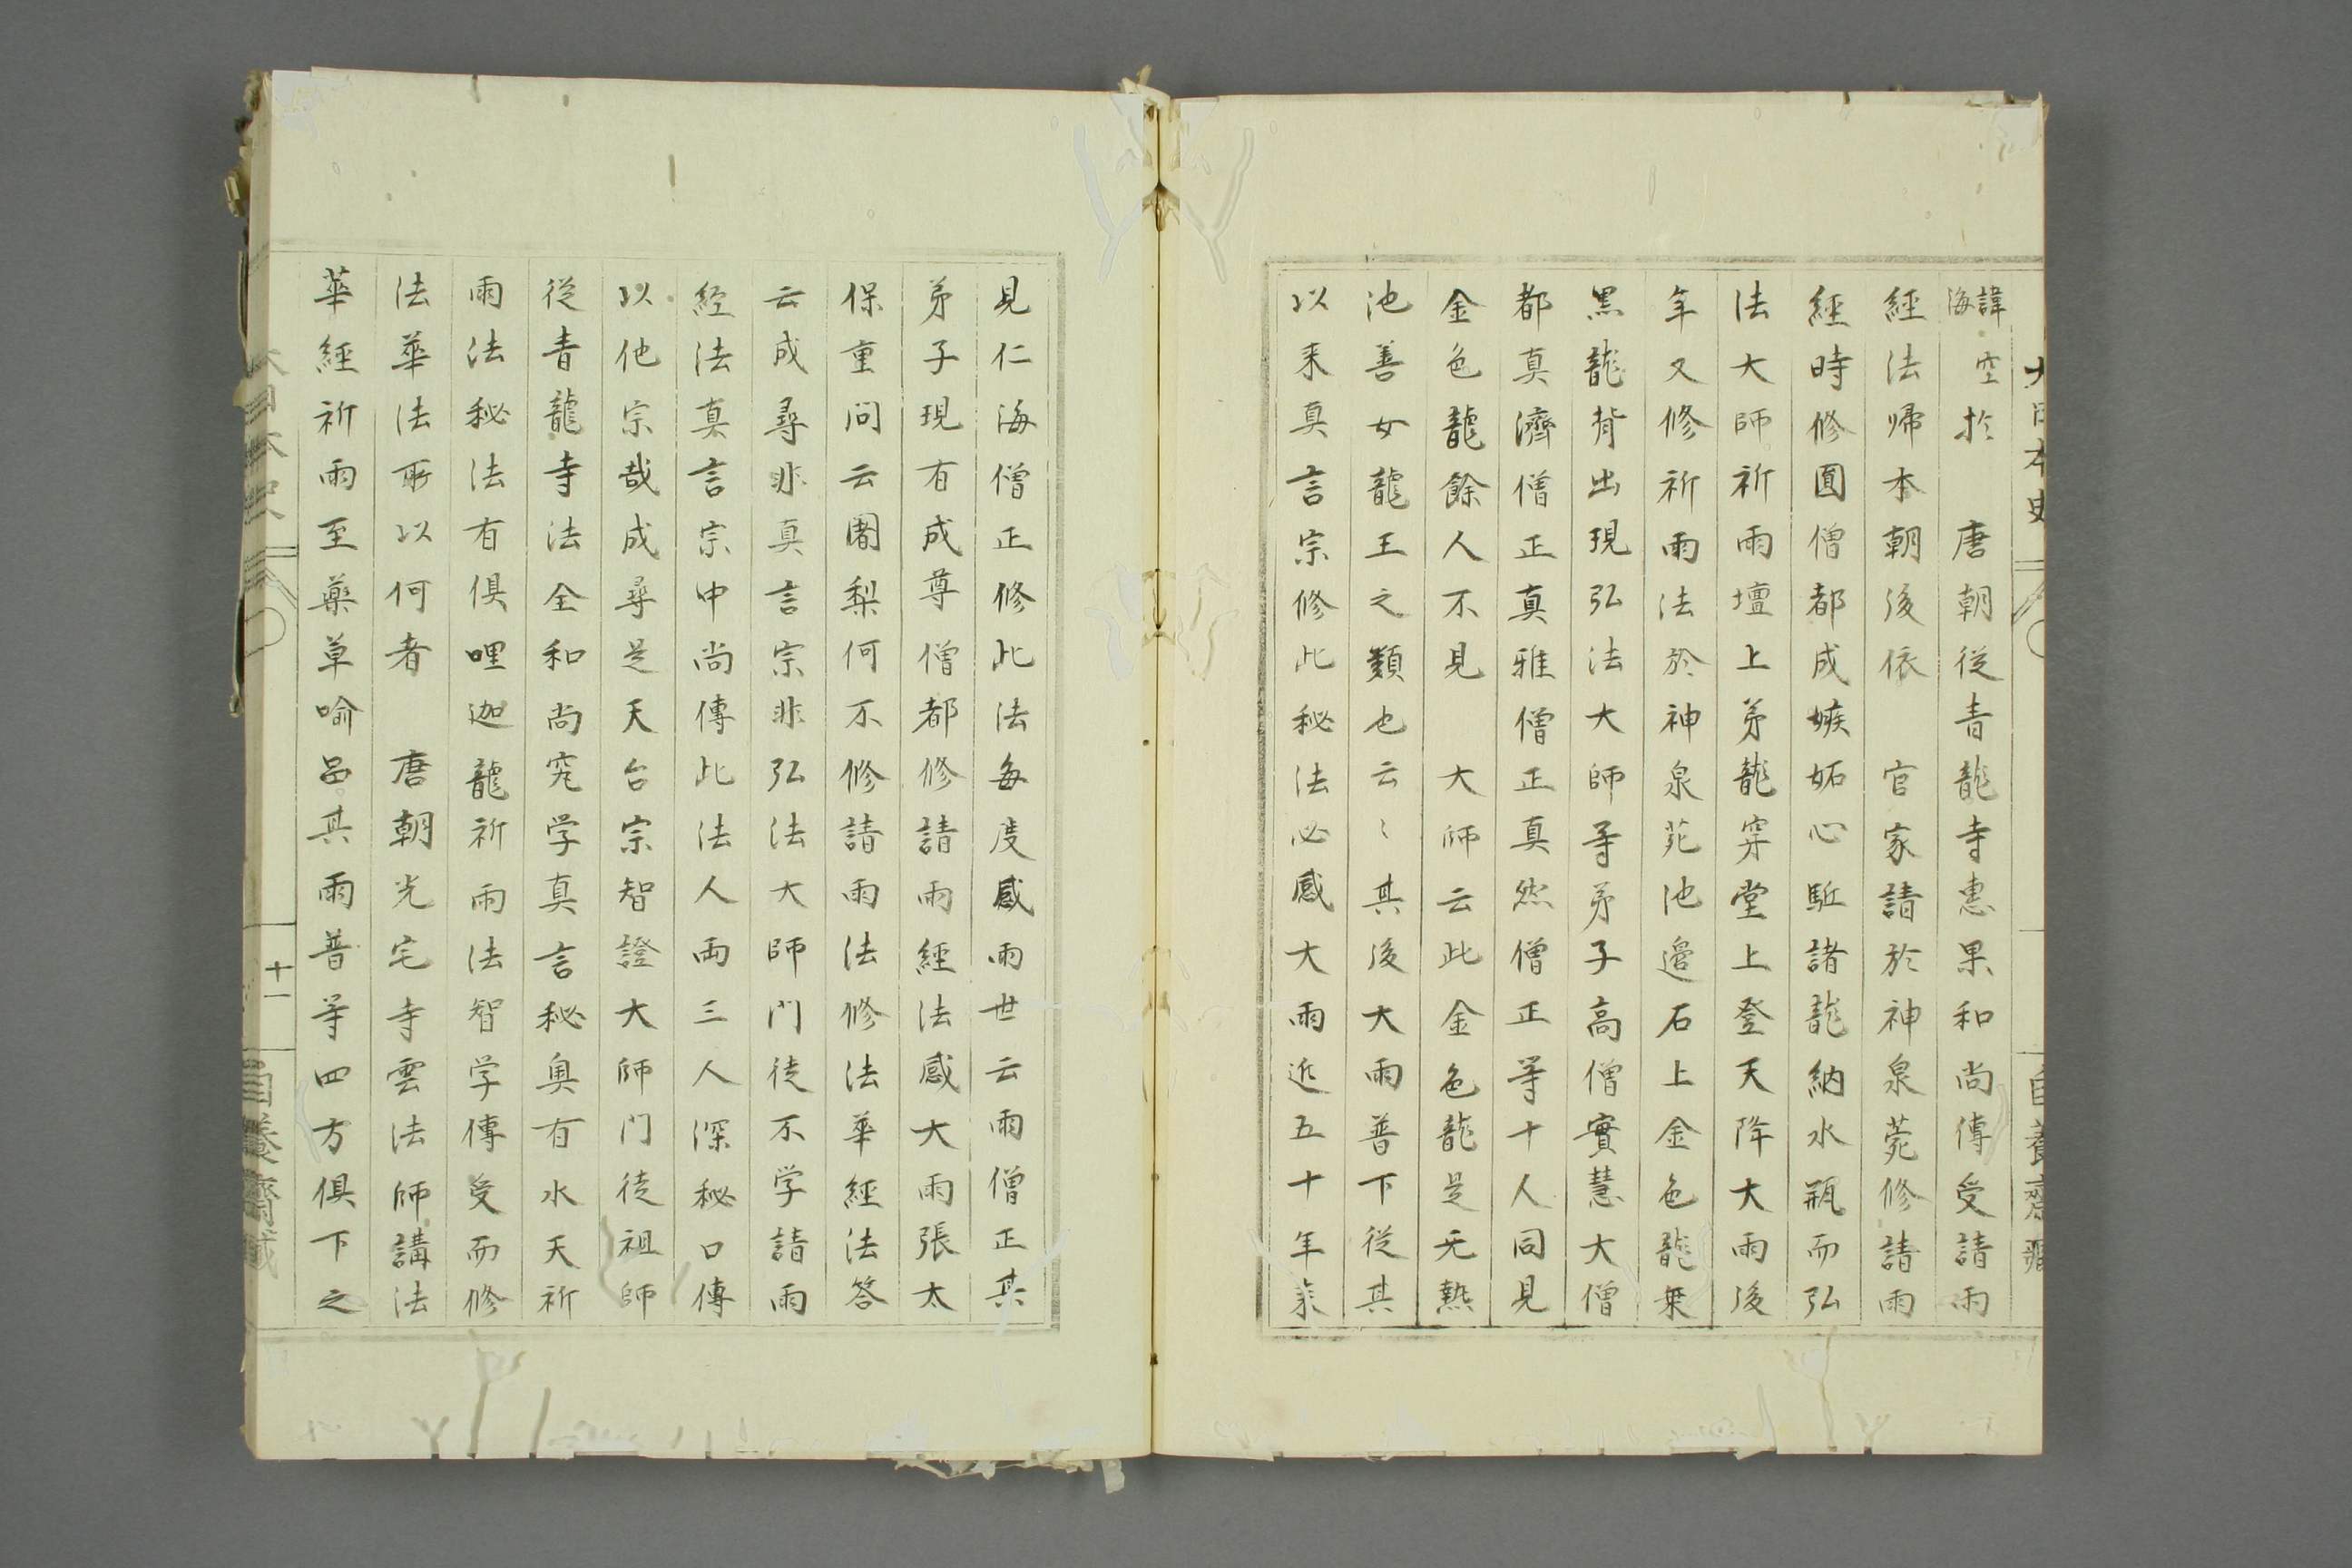 大日本史
自養齋藏
諱空海於　唐朝從青龍寺惠果和尚傳受請雨
經法帰本朝後依　官家請於神泉菀修請雨
經時修圓僧都成嫉妬心駈諸龍納水瓶而弘
法大師祈雨壇上弟龍穿堂上登天降大雨後
年又修祈雨法於神泉苑池邊石上金色龍乗
黒龍背出現弘法大師等弟子高僧實慧大僧
都真濟僧正真雅僧正真然僧正等十人同見
金色龍餘人不見　大師云此金色龍是无熱
池善女龍王之類也云〻其後大雨普下從其
以来真言宗修此秘法必感大雨近五十年来
見仁海僧正修此法每度感雨世云雨僧正其
弟子現有成尊僧都修請雨經法感大雨張太
保重問云闍梨何不修請雨法修法華經法答
云成尋非真言宗非弘法大師門徒不学請雨
經法真言宗中尚傳此法人兩三人深秘口傳
以他宗哉成尋是天台宗智證大師門徒祖師
從青龍寺法全和尚究学真言秘奥有水天祈
雨法秘法有俱哩迦龍祈雨法智学傳受而修
法華法所以何者　唐朝光宅寺雲法師講法
華經祈雨至藥草喻品其雨普等四方俱下之
十一
自養齋藏